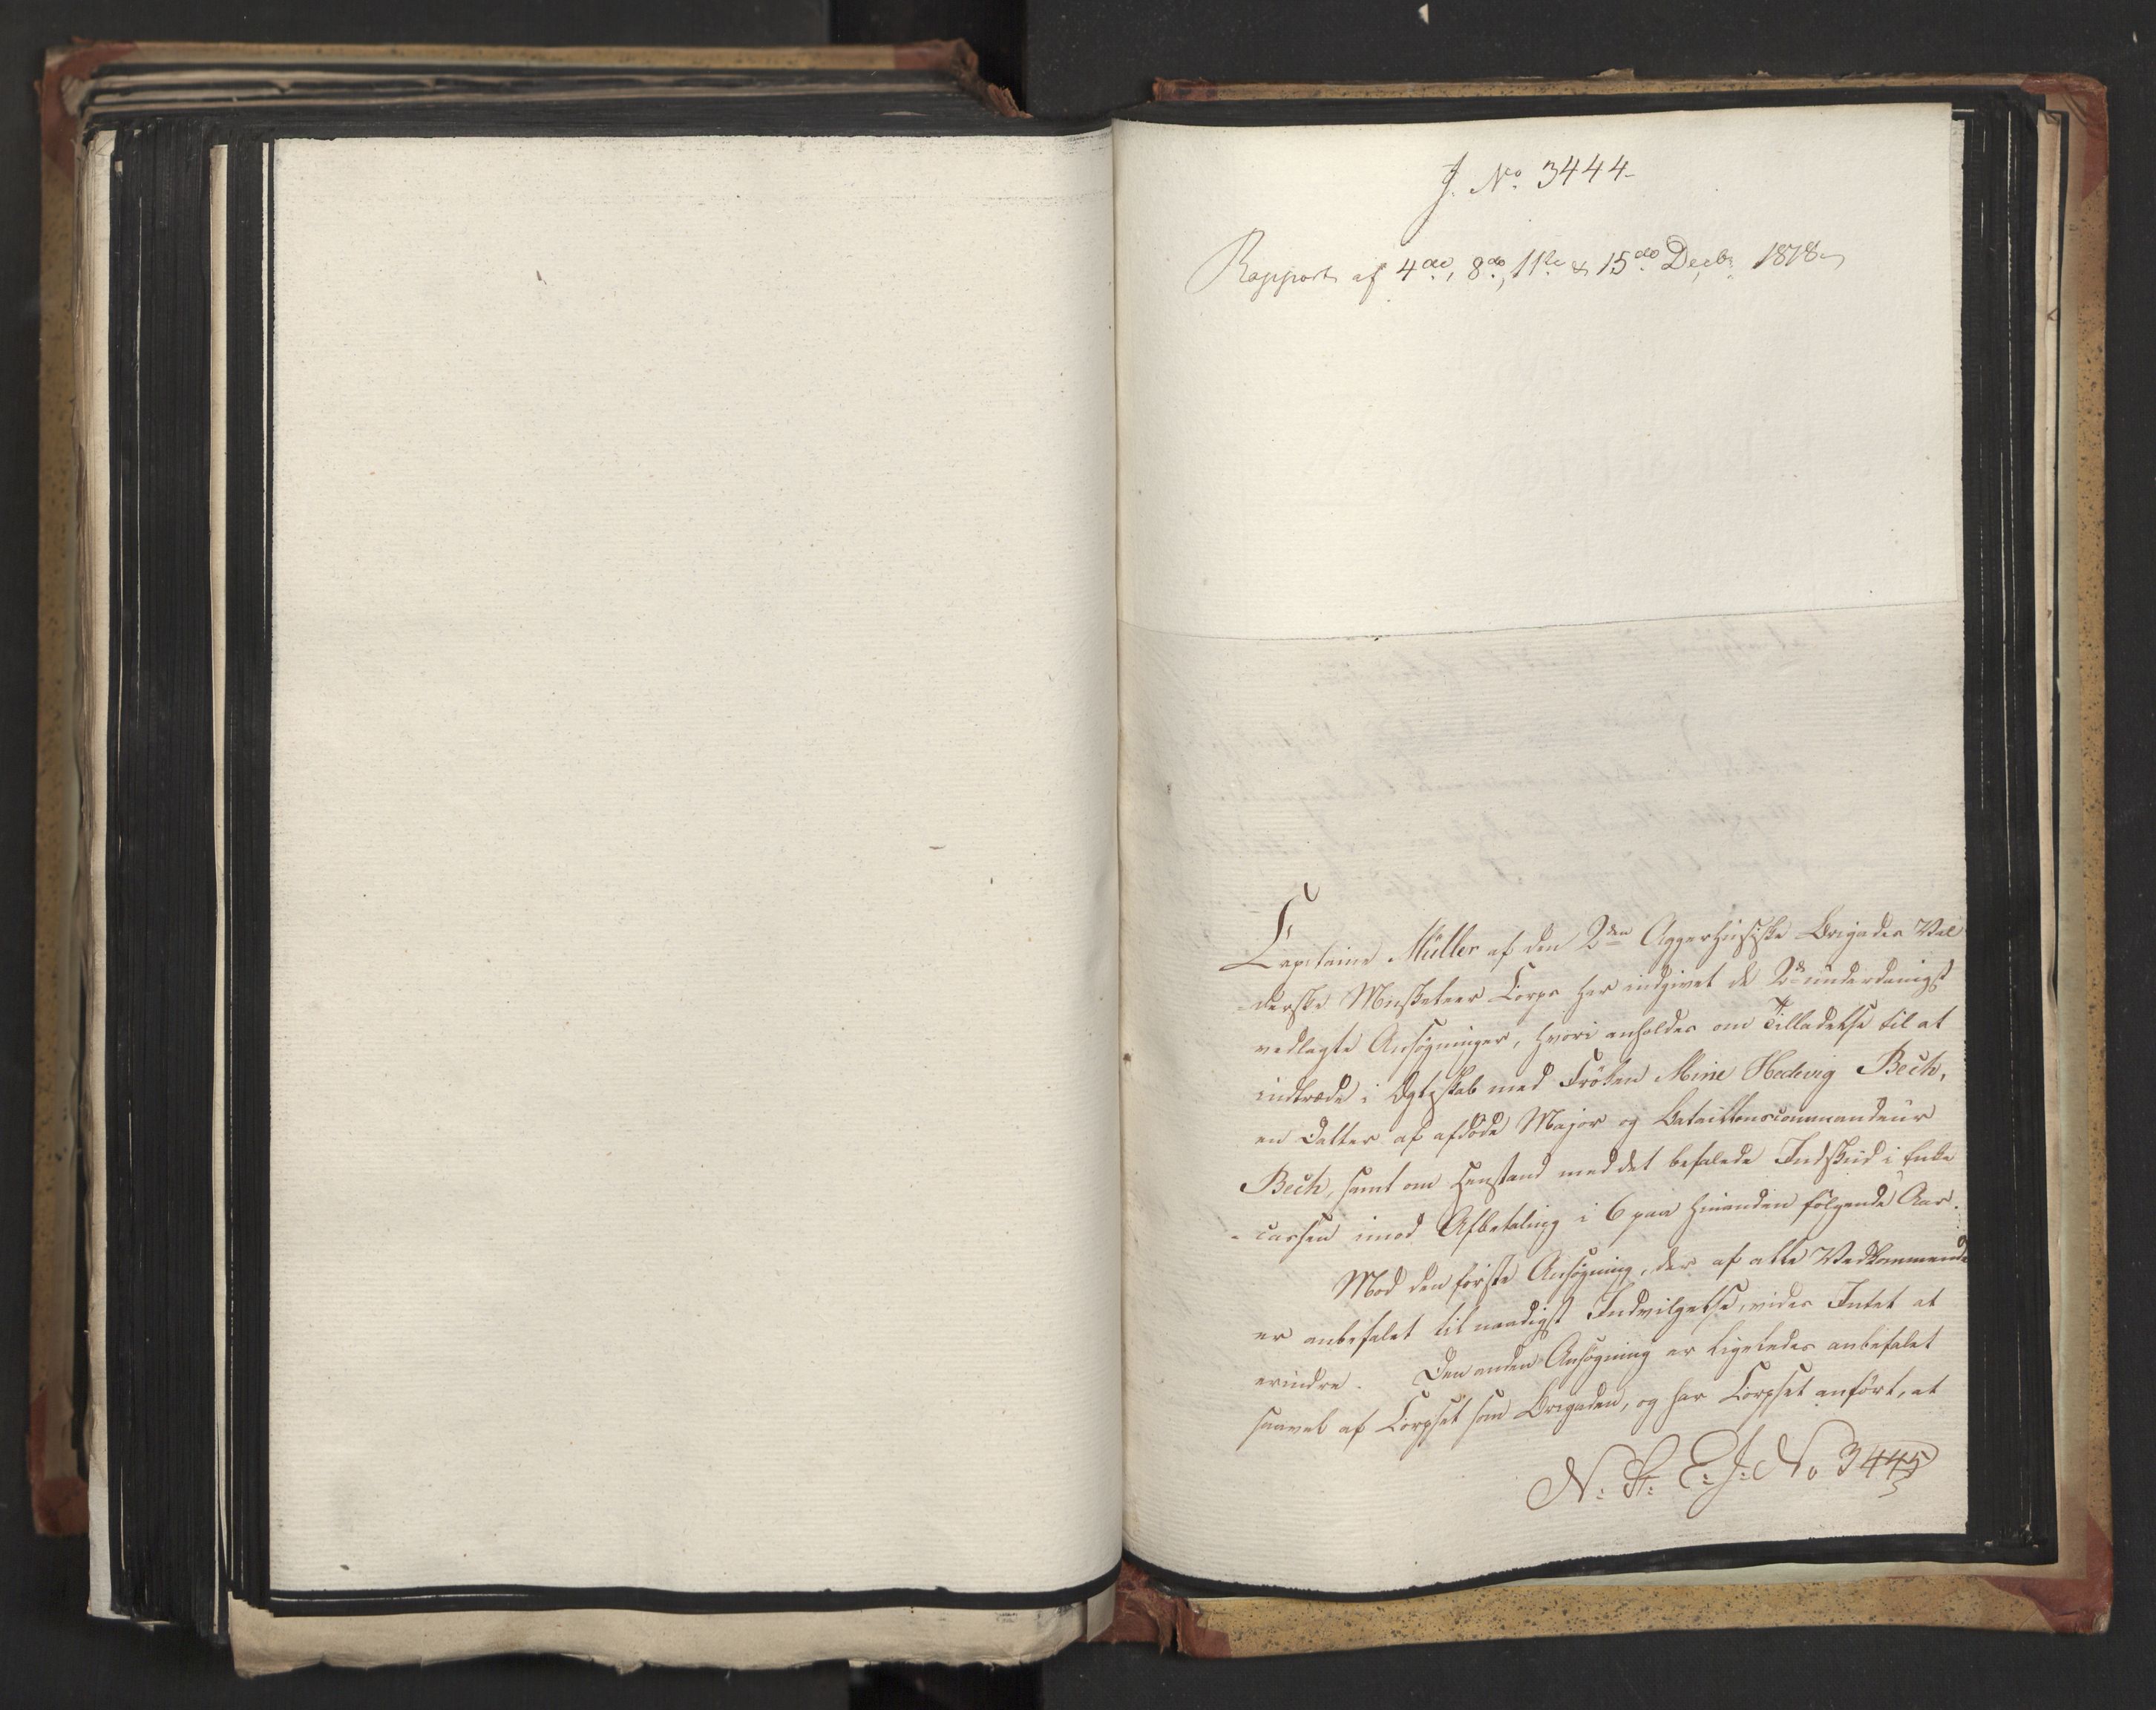 J. No. 3444
Rapport af 4de, 8de, 11te & 15de Decbr 1818
Capitaine Müller af den 2den Aggerhusiske Brigades Val
-derske Musketeer Corps har indgivet de 2de underdanigst
vedlagte Ansøgninger, hvori anholdes om Tilladelse til at
indtræde i Ægteskab med Frøken Mine Hedevig Bech,
en Datter af afdøde Major og Bataillonscommandeur
Bech, samt om Henstand med det befalede Indskud i Enke
-cassen imod Afbetaling i 6 paa hinanden følgende Aar.
Mod den første Ansøgning, der af alle Vedkommende
er anbefalet til naadigst Indvilgelse, vides Intet at
erindre. Den anden Ansøgning er ligeledes anbefalet
saavel af Corpset som Brigaden, og har Corpset anført, at
N: St: E: J: No 3445